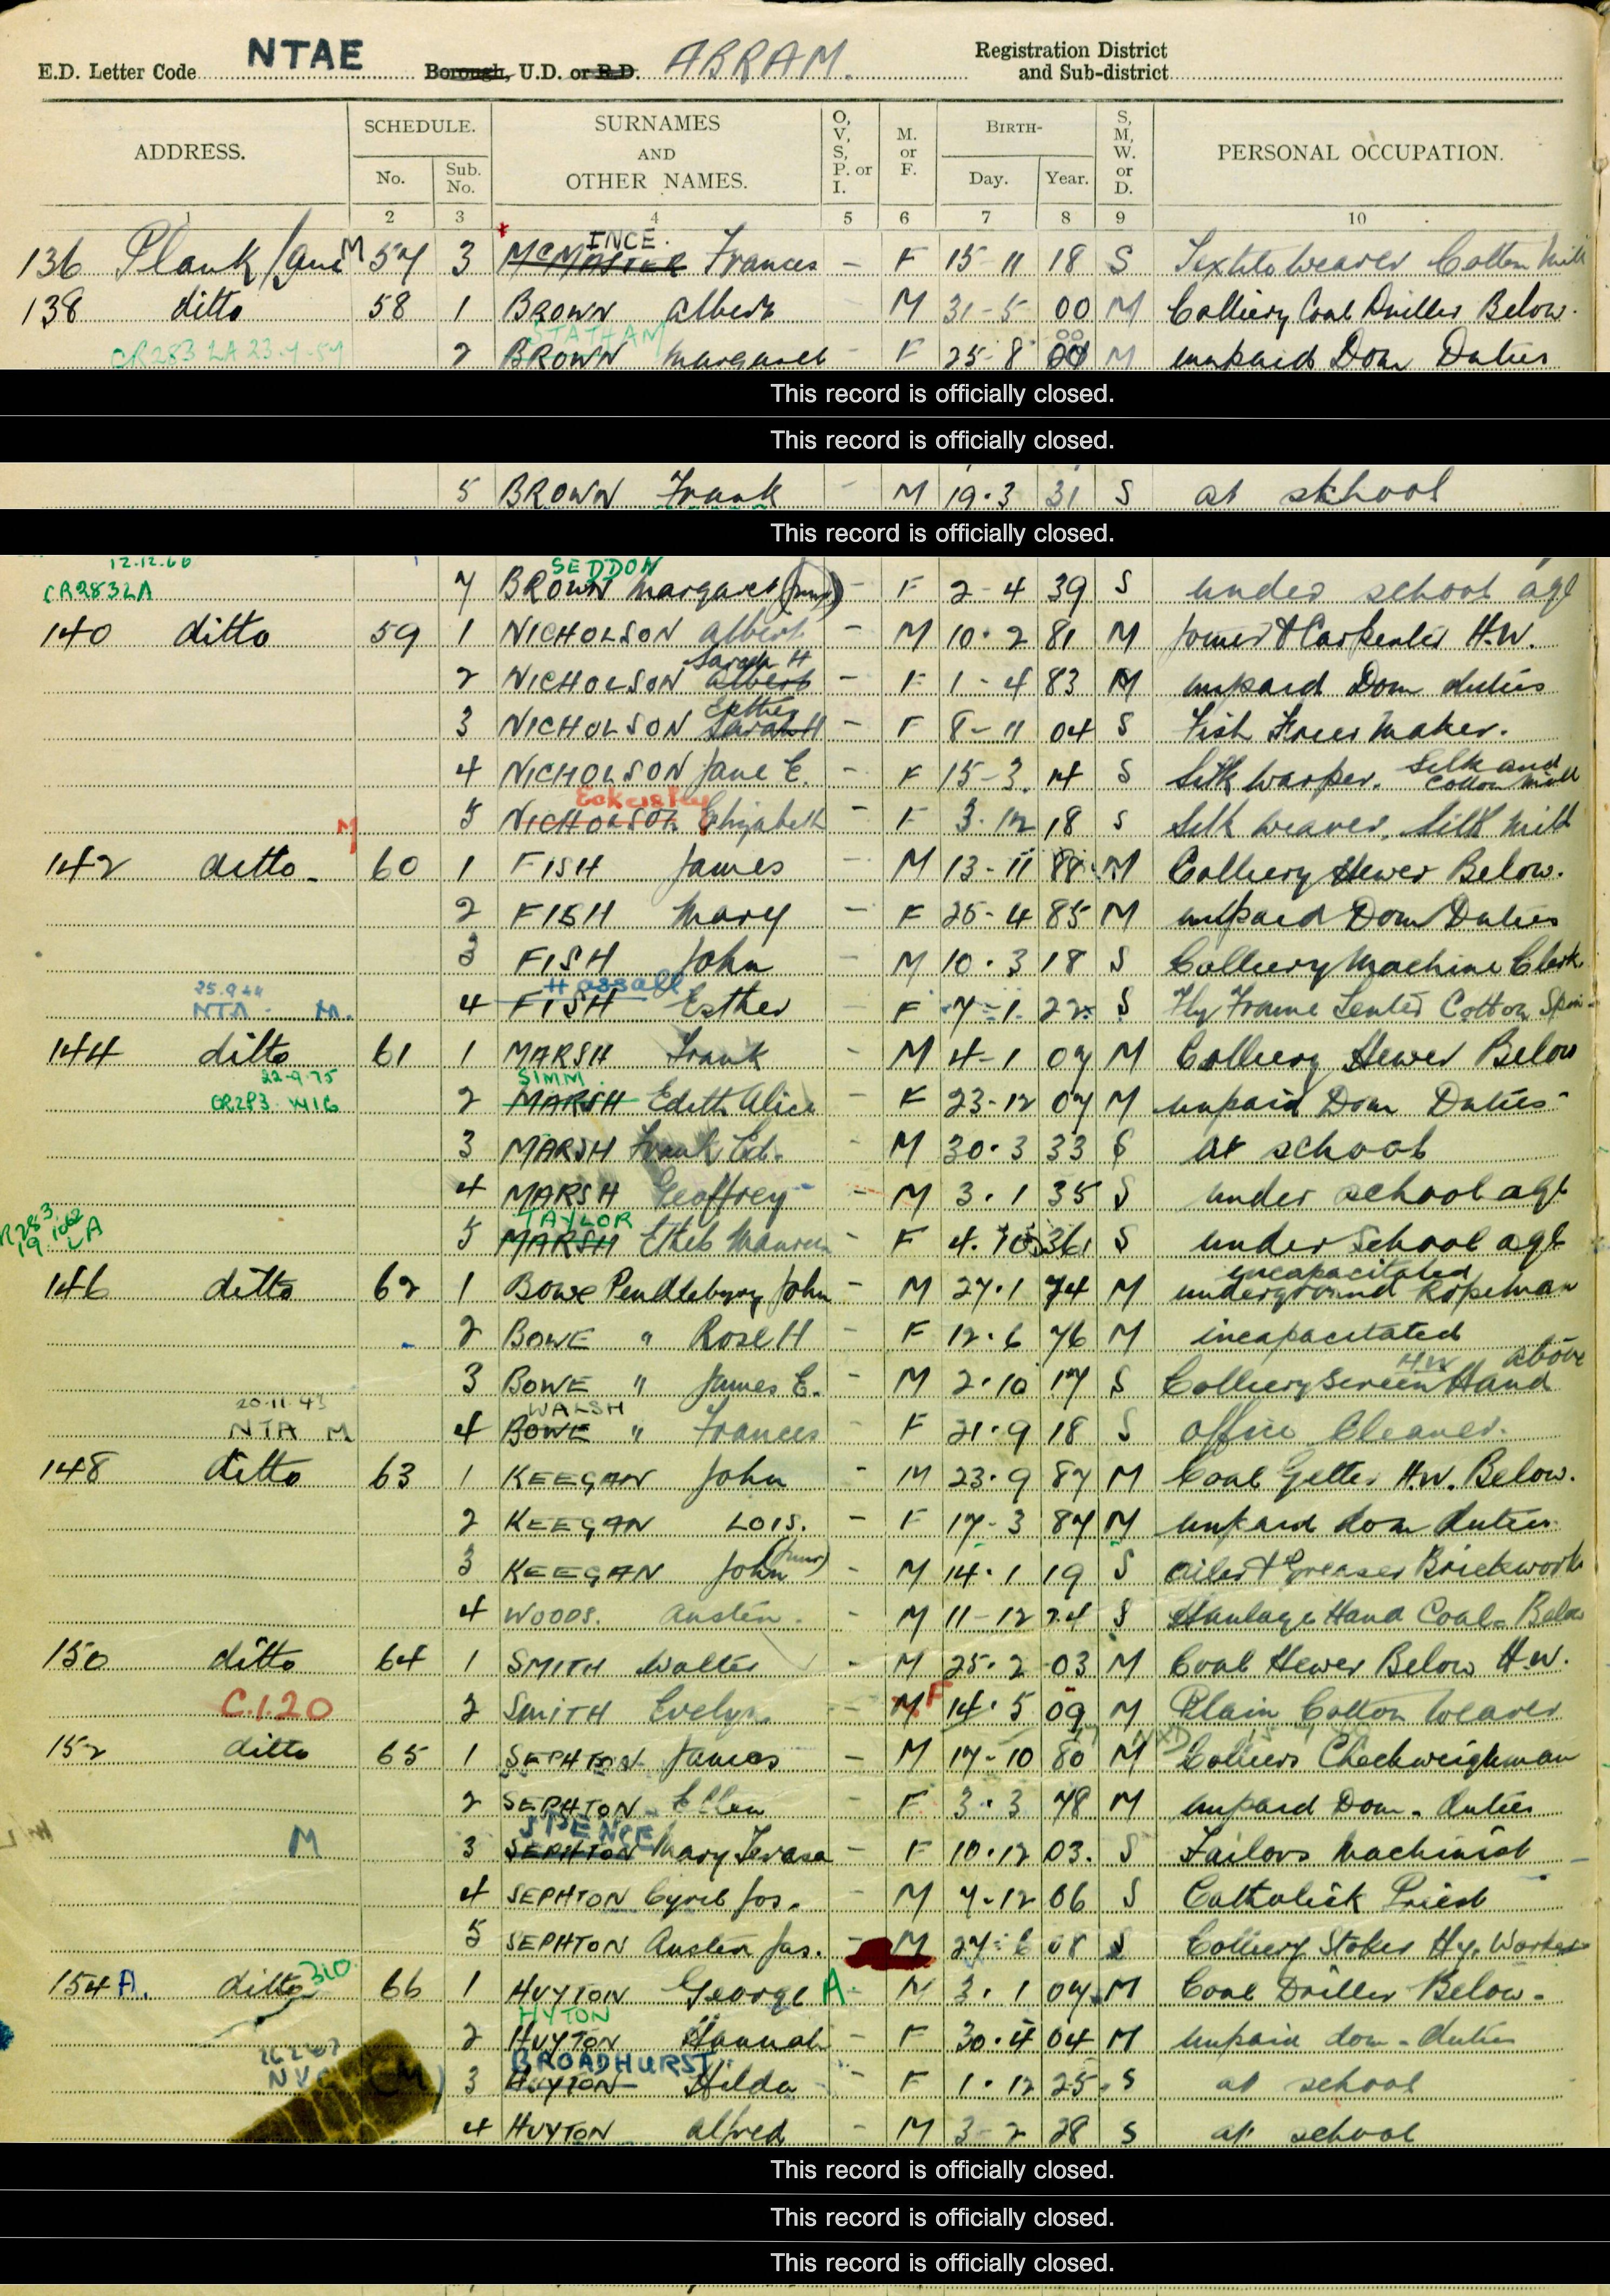 E.D. Letter Code NTAE Borough, U.D. or R.D. ABRAM. Registration District and Sub-district
ADDRESS. SCHEDULE. No. Sub. No. SURNAMES AND OTHER NAMES. O, V, S, P. or I. M. or F. BIRTH- Day. Year. S, M, W. or D. PERSONAL OCCUPATION.
1 2 3 4 5 6 7 8 9 10
INCE.
136 Plank Lane M 57 3 McMASTER Frances - F 15-11 18 S Textile Weaver Cotton Mill
138 ditto 58 1 BROWN Albert M 31-5 00 M Colliery Coal Driller Below.
STATHAM 00
CR283 LA 23.7.57 2 BROWN Margaret - F 25-8 00 M unpaid Dom Duties
This record is officially closed.
This record is officially closed.
5 BROWN Frank - M 19.3 31 S at school
This record is officially closed.
12.12.60 SEDDON
CR283LA 7 BROWN Margaret (junr) - F 2-4 39 S under school age
140 ditto 59 1 NICHOLSON Albert - M 10.2 81 M Joiner & Carpenter H.W.
Sarah H
2 NICHOLSON Albert - F 1-4 83 M unpaid Dom duties
Esther
3 NICHOLSON Sarah H - F 8-11 04 S Fish Fryer Maker.
4 NICHOLSON Jane E. - F 15-3. 14 S Silk Warper. Silk and Cotton Mill
Eckersley
M 5 NICHOLSON Elizabeth F 3.12 18 S Silk Weaver. Silk Mill
142 ditto 60 1 FISH James - M 13-11 88 M Colliery Hewer Below.
2 FISH Mary - F 25-4 85 M unpaid Dom Duties
3 FISH John M 10.3 18 S Colliery Machine Clerk
25.9.44 Hassall
NTA M. 4 FISH Esther - F 7-1. 22 S Fly Frame Tenter Cotton Spin
144 ditto 61 1 MARSH Frank - M 4-1 07 M Colliery Hewer Below
22-9-75 SIMM
CR283 WIG 2 MARSH Edith Alice - F 23-12 07 M unpaid Dom Duties
3 MARSH Frank Ed. - M 30.3 33 S at school
4 MARSH Geoffrey - M 3.1 35 S under school age
R283 19.1062 LA TAYLOR
5 MARSH Ethel Maureen F 4.10 36 S under School age
incapacitated
146 ditto 62 1 BOWE Pendlebury John - M 27.1 74 M underground Ropeman
2 BOWE " Rose H - F 12.6 76 M incapacitated
HW above
3 BOWE " James E. - M 2.10 17 S Colliery Screen Hand
20.11.43 WALSH
NTA M 4 BOWE " Frances F 21.9 18 S Office Cleaner.
148 ditto 63 1 KEEGAN John - M 23.9 87 M Coal Getter H.W. Below.
2 KEEGAN LOIS. - F 17-3 87 M unpaid dom duties
3 KEEGAN John (junr) - M 14.1 19 S Oiler & Greaser Brickwork
4 WOODS. Austin. - M 11-12 24 S Haulage Hand Coal Below
150 ditto 64 1 SMITH Walter - M 25.2 03 M Coal Hewer Below H.W.
C.1.20 2 SMITH Evelyn M F 14.5 09 M Plain Cotton Weaver
152 ditto 65 1 SEPHTON James - M 17-10 80 M Colliers Checkweighman
2 SEPHTON Ellen - F 3.3 78 M unpaid Dom. duties
SPENCE
M 3 SEPHTON Mary Teresa - F 10.12 03. S Tailors Machinist
4 SEPHTON Cyril Jos. - M 7-12 06 S Catholick Priest
5 SEPHTON Austin Jas. M 27.6 08 S Colliery Stoker Hy. Worker
154 A. ditto 310 66 1 HUYTON George A - M 3.1 07 M Coal Driller Below.
HYTON
2 HUYTON Hannah - F 30.4 04 M unpaid dom. duties
BROADHURST
3 HUYTON Hilda - F 1.12 25. S at school
4 HUYTON Alfred - M 3-2 28 S at school
This record is officially closed.
This record is officially closed.
This record is officially closed.